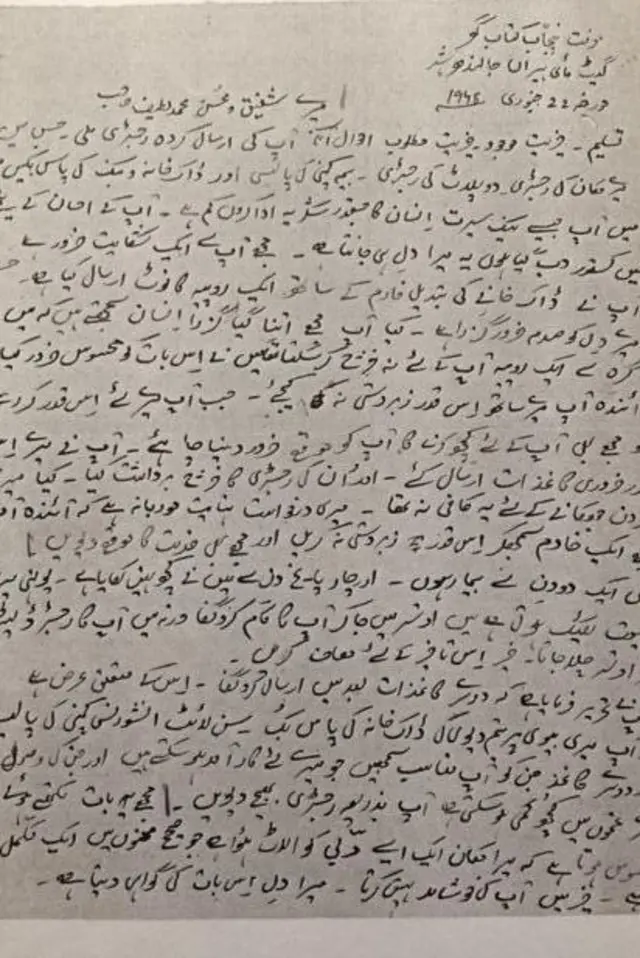 معرفت پنجاب کتاب گھر
گیٹ مائی ہیراں جالندھر شہر
مورخہ 22 جنوری
میرے شفیق و محسن محمد لطیف صاحب
تسلیم ۔ خیریت موجود ۔ خیریت مطلوب احوال آنکہ آپ کی ارسال کردہ رجسٹری ملی ۔ جس میں
میرے مکان کی رجسٹری ۔ دو پلاٹ کی رجسٹری ۔ بیمہ کمپنی کی پالیسی اور ڈاک خانہ و بینک کی پاس بکیں
میں آپ جیسے نیک سیرت انسان کا جسقدر شکریہ ادا کروں کم ہے ۔ آپ کے احسان کے
میں کسقدر دب گیا ہوں یہ میرا دل ہی جانتا ہے ۔ مجھے آپ سے ایک شکایت ضرور ہے
آپ نے ڈاک خانے کی تبدیل فارم کے ساتھ ایک روپیہ کا نوٹ ارسال کیا ہے ۔
میرے دل کو صدمہ ضرور گزرا ہے ۔ کیا آپ مجھے اتنا گیا گزرا انسان سمجھتے ہیں کہ میں
گرہ سے ایک روپیہ آپ کے لئے نہ خرچ کر سکتا تھا میں نے اس بات کو محسوس ضرور کیا
آئندہ آپ میرے ساتھ اس قدر زبردستی نہ کیجئے ۔ جب آپ میرے لئے اس قدر کر رہے
مجھے بھی آپ کے لئے کچھ کرنے کا آپ کو موقع ضرور دینا چاہئے ۔ آپ نے میرے
اور ضروری کاغذات ارسال کئے ۔ اور اُن کی رجسٹری کا خرچ برداشت کیا ۔ کیا میری
گردن جھکانے کے لئے یہ کافی نہ تھا ۔ میری درخواست نہایت مودبانہ ہے کہ آئندہ آپ
مجھے ایک خادم سمجھکر اس قدر زبردستی نہ کریں اور مجھے بھی خدمت کا موقع دیویں
میں ایک دو دن سے بیمار ہوں ۔ اور چار پانچ دن سے میں نے کچھ نہیں کھایا ہے ۔ جونہی میری
طبیعت ٹھیک ہوتی ہے میں امرتسر میں جا کر آپ کا کام کرونگا ورنہ میں آپ کا رجسٹری
امرتسر چلا جاتا ۔ خیر اس تاخیر کے لئے معاف کریں ۔
آپ نے تحریر فرمایا ہے کہ دوسرے کاغذات بعد میں ارسال کرونگا ۔ اس کے متعلق عرض ہے
آپ میری بیوی کی ڈاک خانہ کی پاس بک سن لائٹ انشورنس کمپنی کی پالیسی
اور دوسرے کاغذ جن کو آپ مناسب سمجھیں جو میرے لئے کارآمد ہو سکتے ہیں اور جن کی وصولی
سے غموں میں کچھ کمی ہو سکتی ہے آپ بذریعہ رجسٹری بھیج دیویں ۔ مجھے یہ بات لکھتے ہوئے
محسوس ہوتا ہے کہ میرا مکان ایک ایسے آدمی کو الاٹ ہوا ہے جو صحیح معنوں میں ایک مکمل
ہے ۔ خیر میں آپ کی خوشامد نہیں کرتا ۔ میرا دل اس بات کی گواہی دیتا ہے ۔